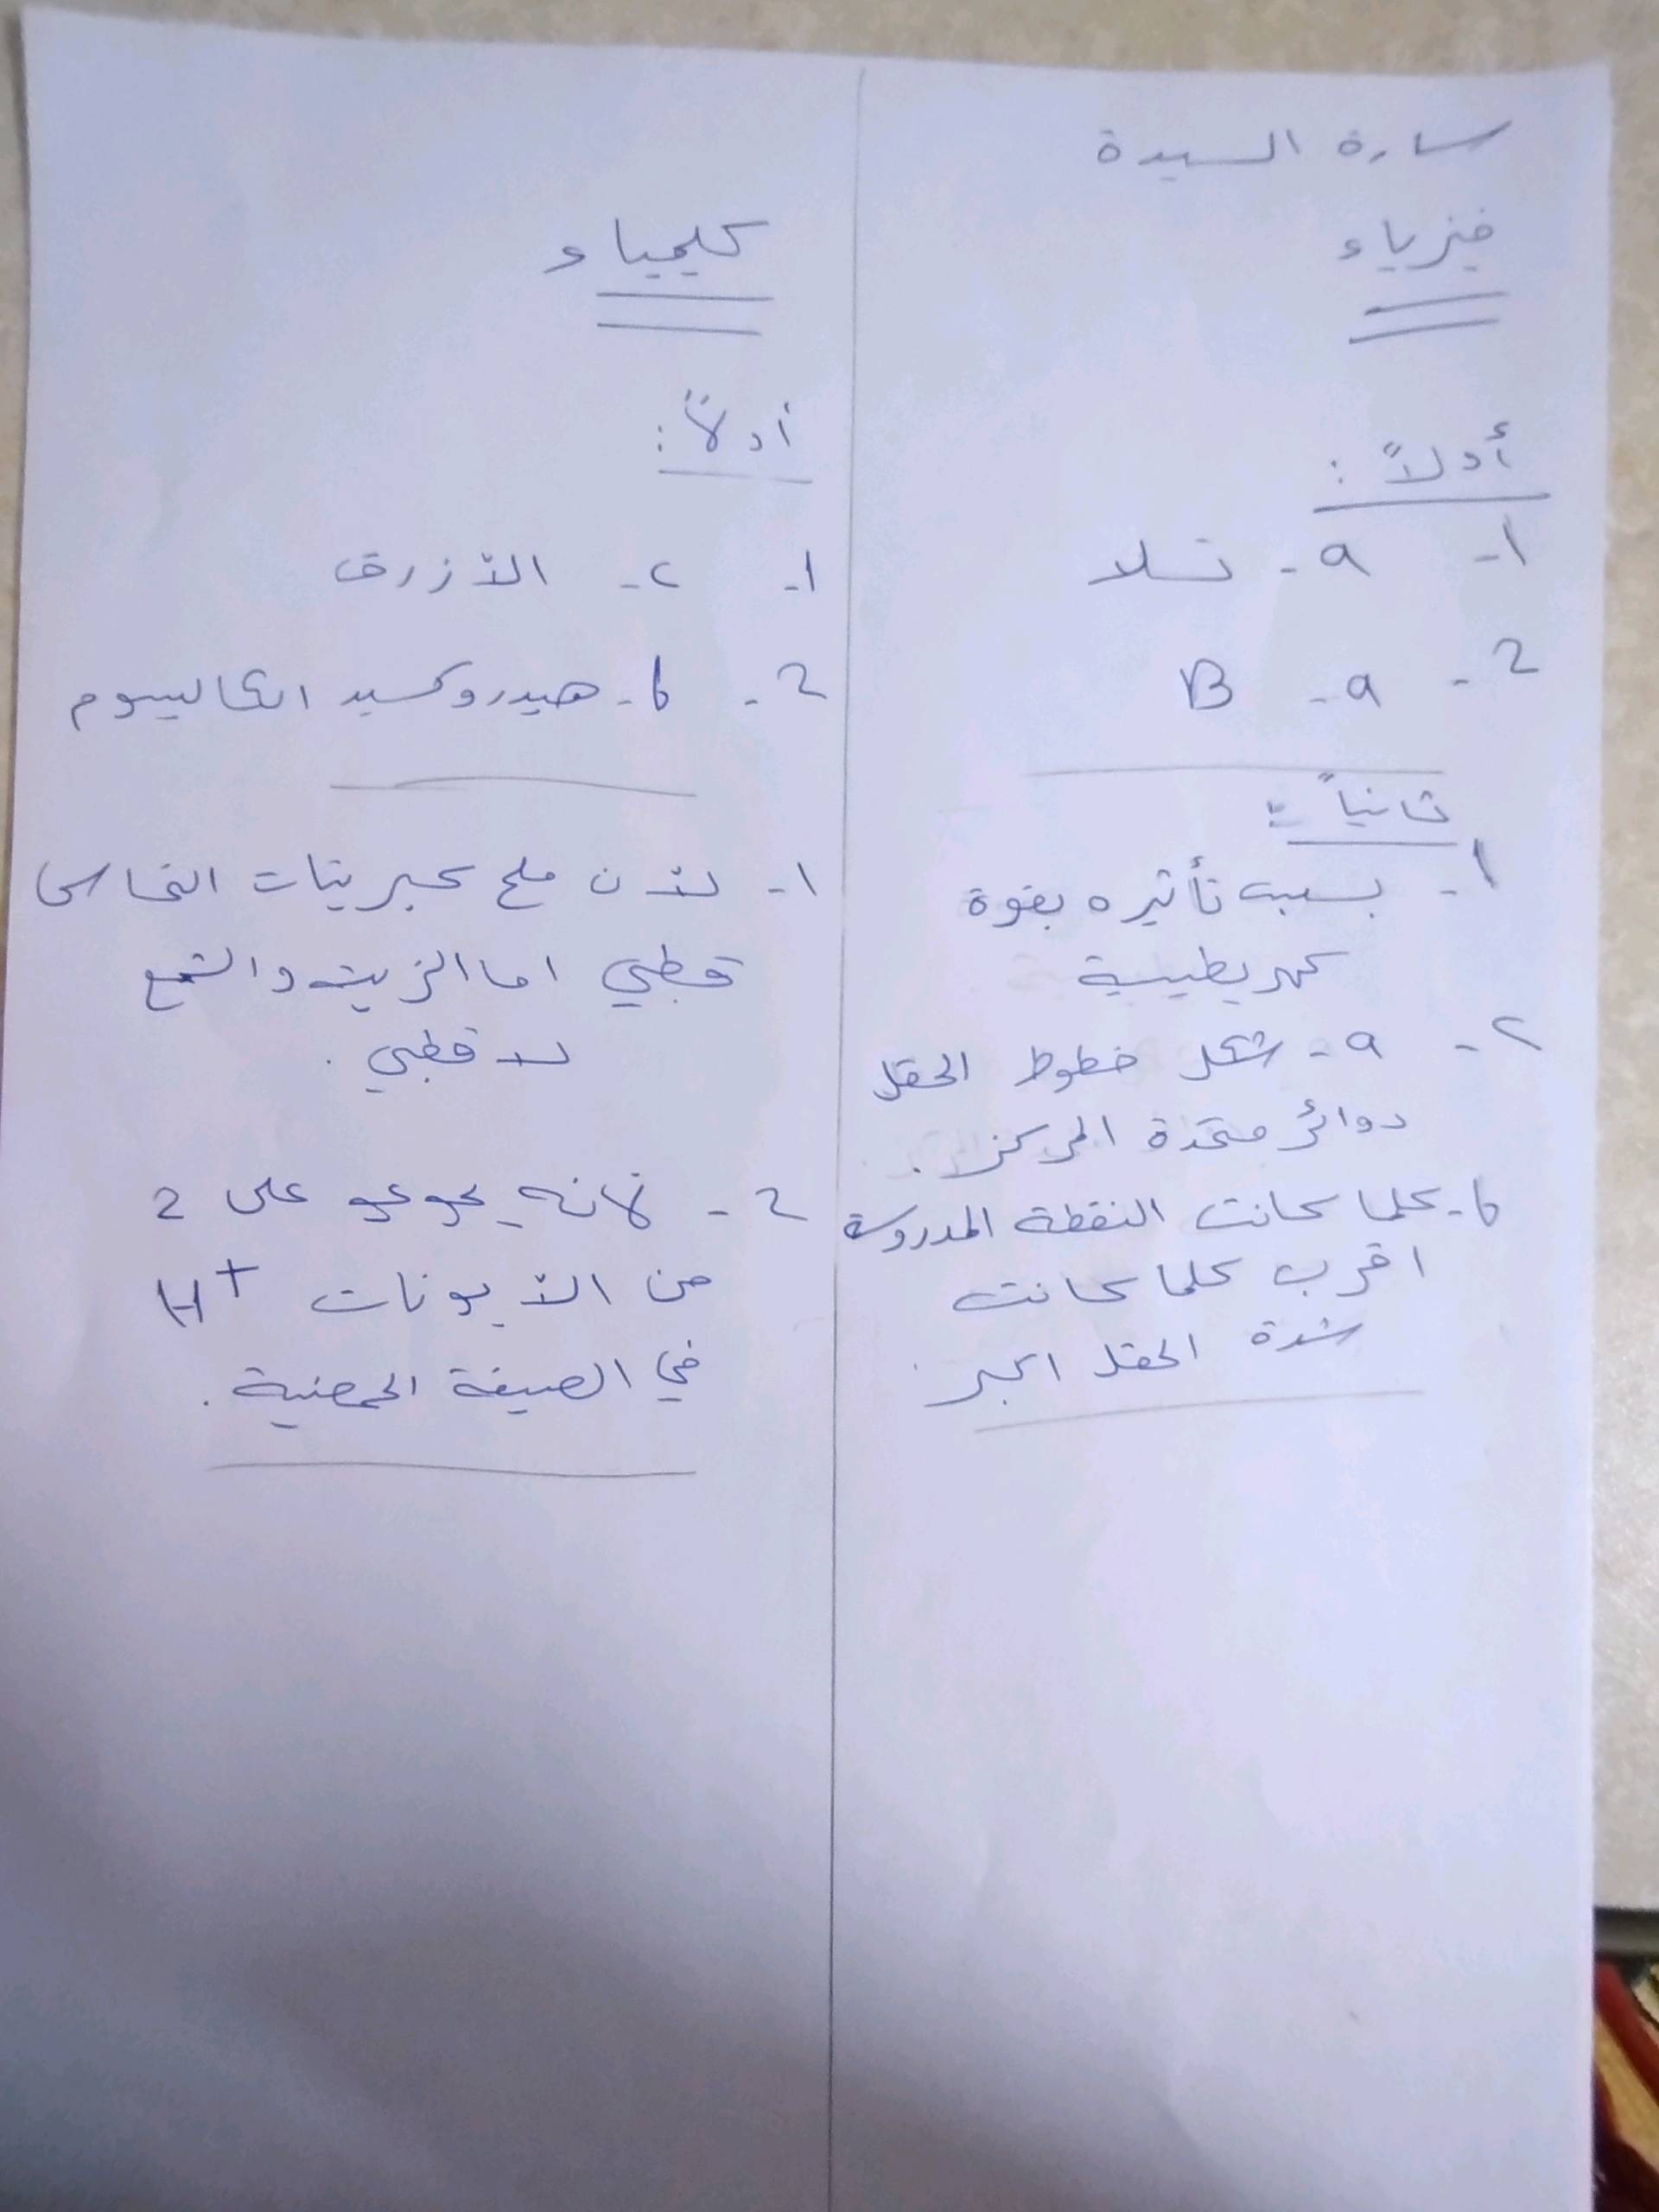 سارة السيدة
فيزياء
أولاً :
1- a - تسلا
2- a - B
ثانياً :
1- بسبب تأثيره بقوة
كهرطيسية
2- a - شكل خطوط الحقل
دوائر متحدة المركز .
b - كلما كانت النقطة المدروسة
اقرب كلما كانت
شدة الحقل اكبر .
كيمياء
أولاً :
1- c - الأزرق
2- b - هيدروكسيد الكالسيوم
1- لأن ملح كبريتات النحاس
قطبي اما الزيت والشمع
لا قطبي .
2- لأنه يحوي على 2
من الأيونات H+
في الصيغة الحمضية .